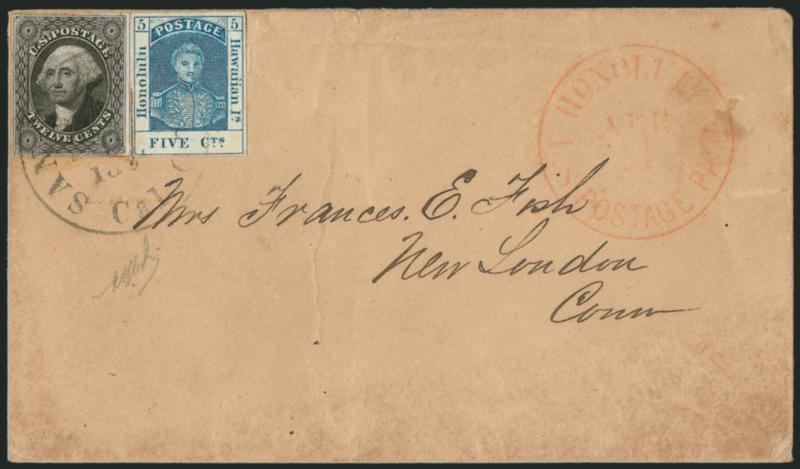 U.S. POSTAGE
TWELVE CENTS
5 POSTAGE 5
Honolulu
Hawaiian Is
FIVE Cts
HONOLULU
APR
U.S. POSTAGE PAID
SAN
Cal
Mrs Frances. E. Fish
New London
Conn